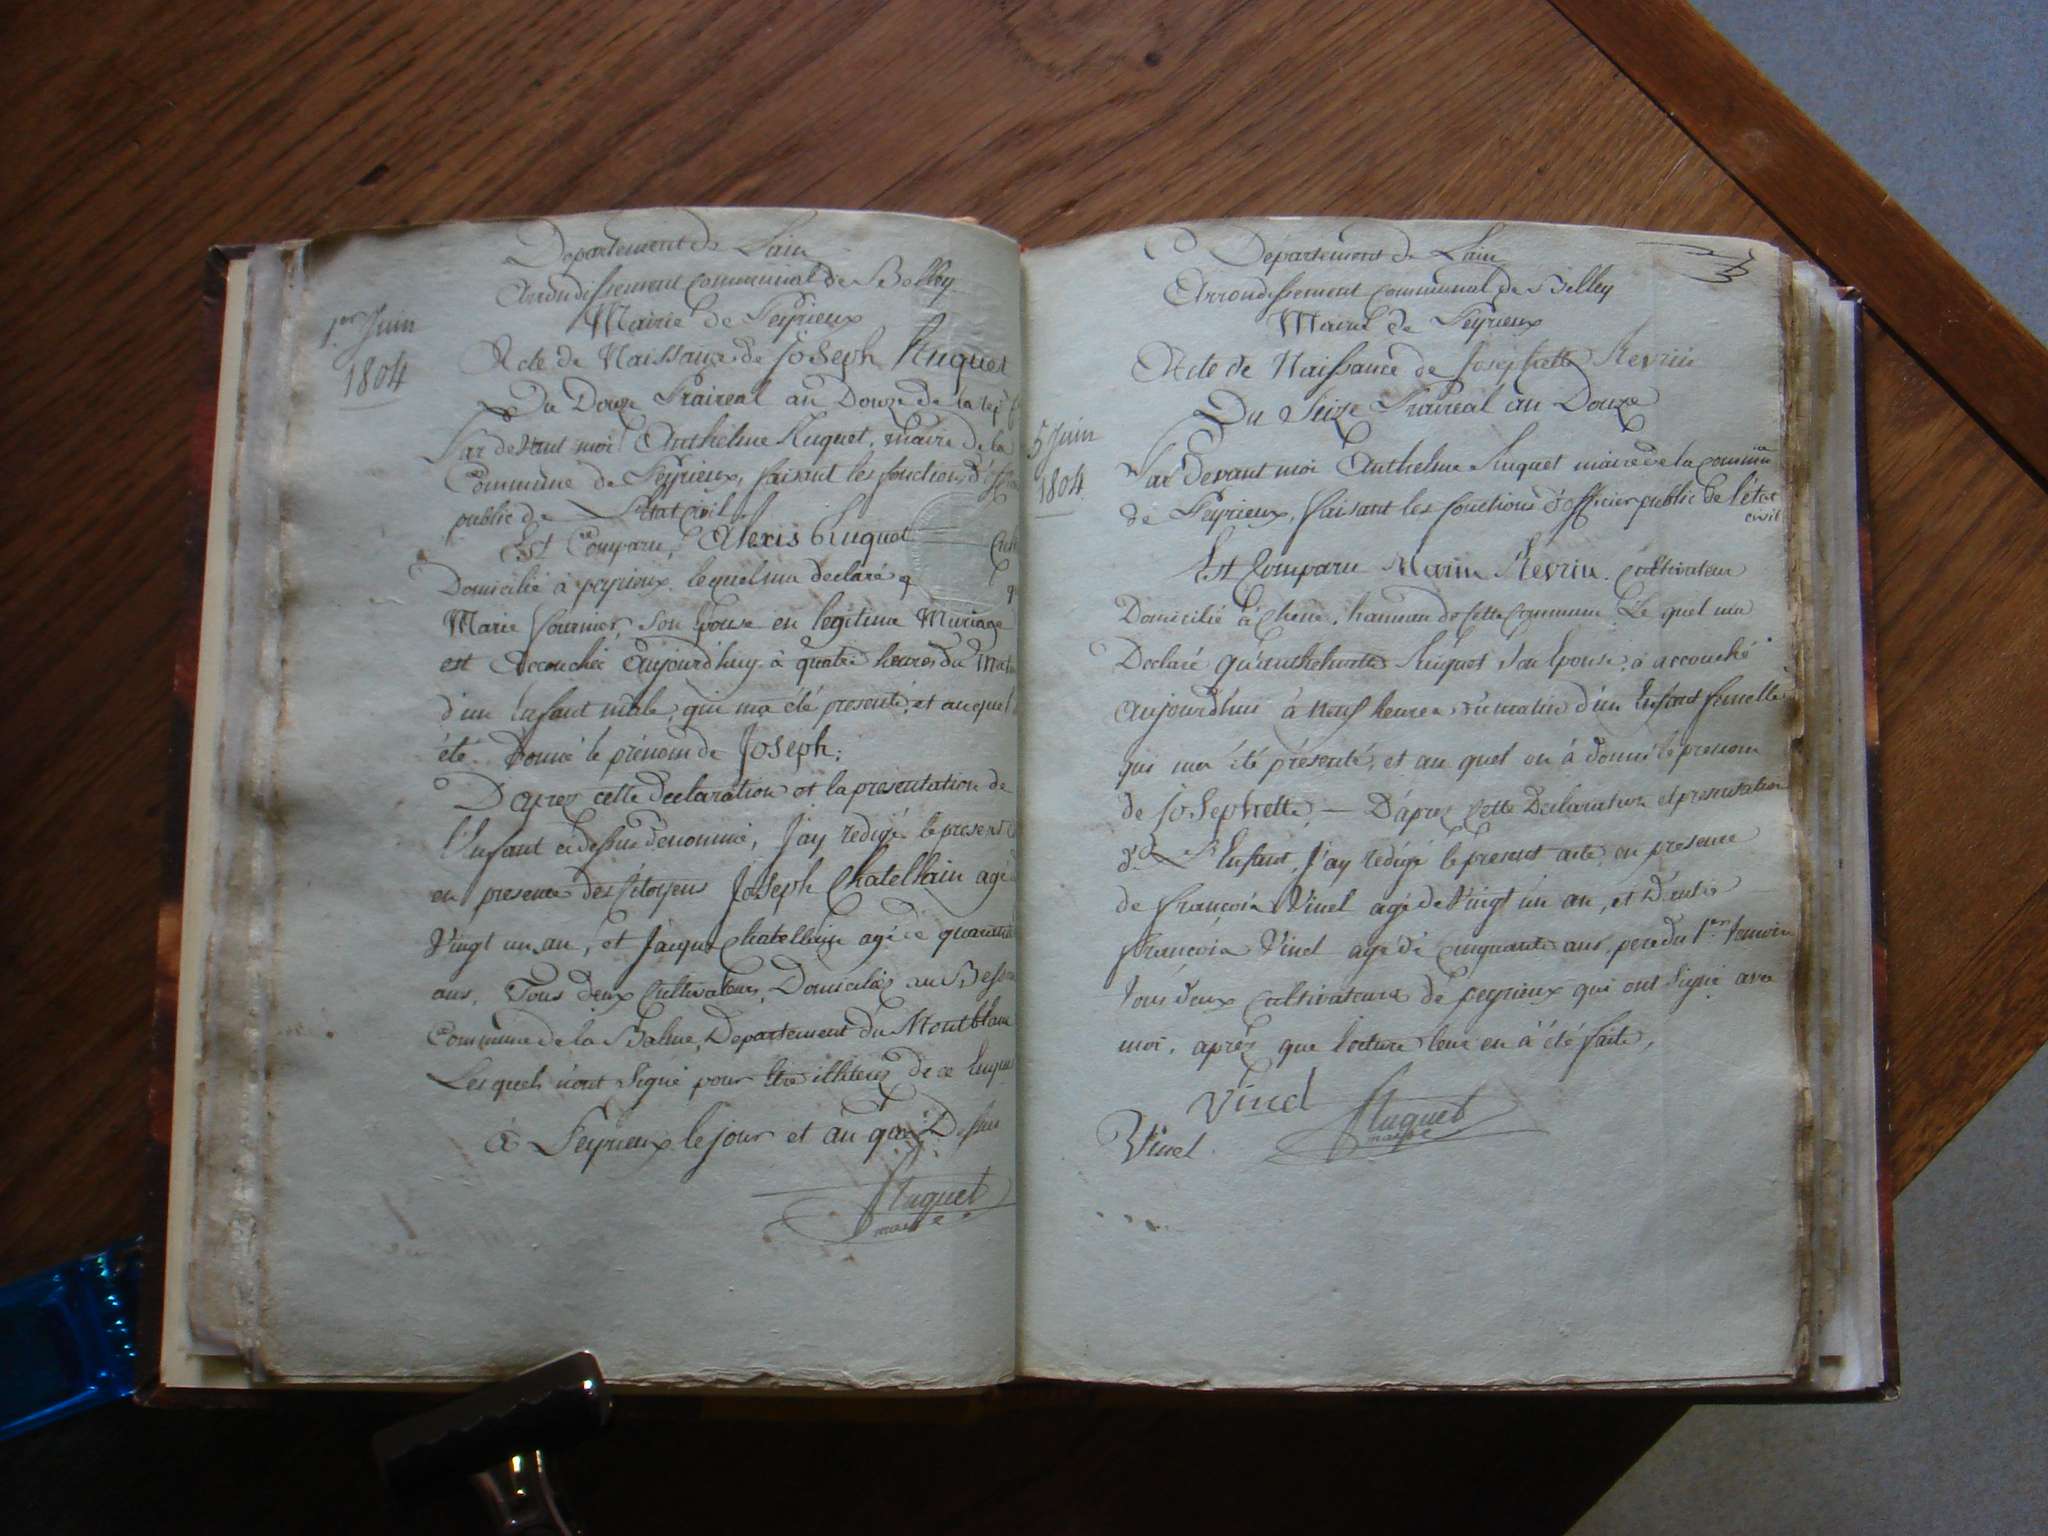 Departement de Lain
Arrondissement communal de Belley
Mairie de Peyrieux
1.er Juin
1804
Acte de Naissance de Joseph Huguet
Du Douze Praireal an Douze de la rep
Par devant moi Anthelme Huguet, maire de la
Commune de Peyrieux, faisant les fonctions d'
public de L'Etat Civil.
Est Comparu, Alexis huguet
Domicilié à peyrieux lequel ma declaré q
Marie fournier, son Epouse en legitime Mariage
est Accouchée Aujourd'huy à quatre heures du Mat
d'un Enfant mâle, qui ma été presenté, et auquel
été Donné le prénom de Joseph;
D'apres cette declaration et la presentation de
l'Enfant ci dessus denommé, J'ay redigé le present
en presence des Citoyens Joseph Chatellain agé
Vingt un an, et Jacques Chatellain agé de quarante
ans, Tous deux Cultivateurs, Domiciliés au
Commune de la Balme, Departement du Montblanc
Lesquels n'ont Signé pour être illiteres de ce
à Peyrieux le jour et an que Dessus
Huguet
maire
Departement de Lain
Arrondissement communal de Belley
Mairie de Peyrieux
Acte de Naissance de Josephette Revrin
Du Seize Praireal an Douze
5 Juin
1804
Par devant moi Anthelme Huguet maire de la commune
de Peyrieux, faisant les fonctions d'officier public de l'état
civil
Est Comparu Marin Revrin. cultivateur
Domicilié à hameau de cette commune. Le quel ma
Declaré qu'anthelmette Huguet son Epouse, à accouché
aujourd'hui à neuf heures du matin d'un Enfant femelle
qui ma été présenté, et au quel on à donné le prenom
de Josephette, — D'après cette Declaration et presentation
de L'Enfant, J'ay redigé le present acte, en presence
de françois Vinel agé de Vingt un an, et D'autre
françois Vinel agé de Cinquante ans, pere du 1.er temoin
tous deux cultivateurs de peyrieux qui ont Signé avec
moi, après que lecture leur en à été faite,
Vinel
Huguet
maire
Vinel